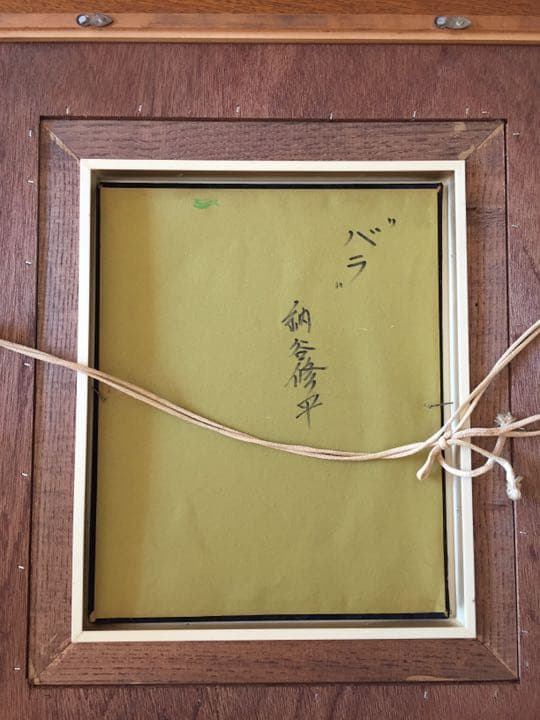 "バラ"
納谷修平